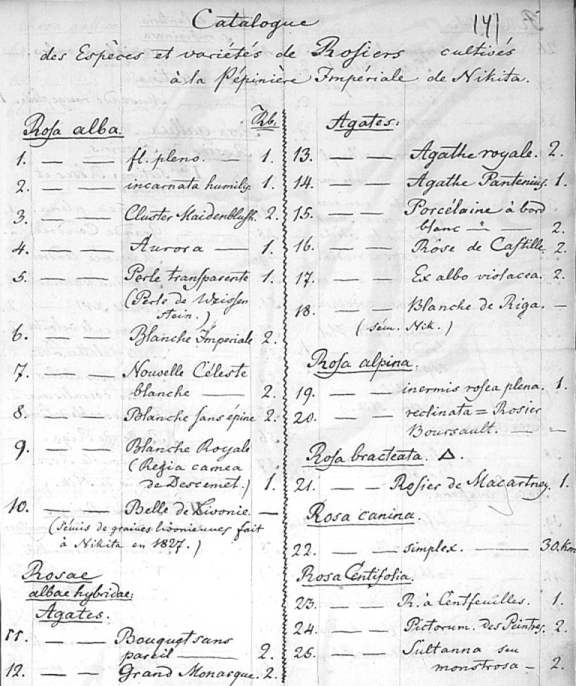 Catalogue
141
des Espèces et variétés de Rosiers cultivés
à la Pépiniere Imperiale de Nikita.
Rosa alba. Rb.
1. — — fl. pleno. — 1.
2. — — incarnata humilis 1.
3. — — Cluster Maidenblush. 2.
4. — — Aurora — 1.
5. — — Perle transparente 1.
(Perle de Weissen
stein.)
6. — — Blanche Imperiale 2.
7. — — Nouvelle Céleste
blanche — 2.
8. — — Blanche sans epine 2.
9. — — Blanche Royale
(Regia carnea
de Descemet.) 1.
10. — — Belle de Livonie. —
(Semis de graines livoniennes fait
à Nikita en 1827.)
Rosae
albae hybridae.
Agates.
11. — — Bouquet sans
pareil — 2.
12. — — Grand Monarque. 2.
Agates.
13. — — Agathe royale. 2.
14. — — Agathe Pantenius. 1.
15. — — Porcelaine à bord
blanc — 2.
16. — — Rose de Castille. 2.
17. — — Ex albo violacea. 2.
18. — — Blanche de Riga. —
(Sém. Nik.)
Rosa alpina.
19. — — inermis rosea plena. 1.
20. — — reclinata = Rosier
Boursault. — —
Rosa bracteata. Δ.
21. — — Rosier de Macartney. 1.
Rosa canina.
22. — — simplex. — 30. Kop
Rosa Centifolia.
23. — — R. à Centfeuilles. 1.
24. — — Pictorum. des Peintres. 2.
25. — — Sultanna seu
monstrosa — 2.